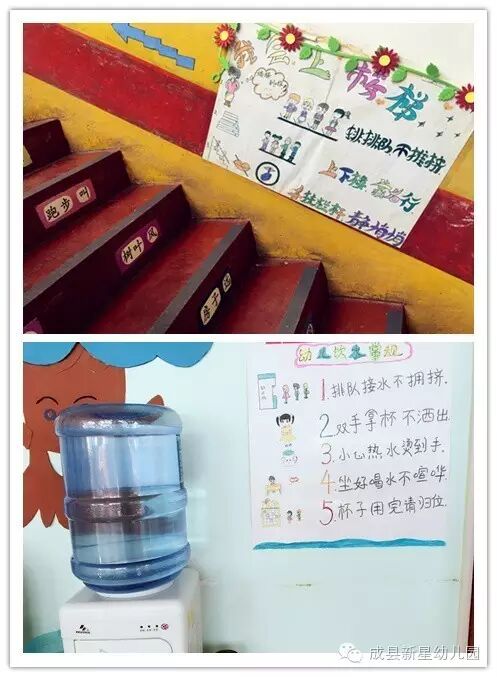 排排队,不推挤
上下楼,靠右行
静悄悄
跑步 叫
树叶 风
房子
幼儿饮水常规
1.排队接水不拥挤.
2.双手拿杯不洒出.
3.小心热水烫到手.
4.坐好喝水不喧哗.
5.杯子用完请归位.
成县新星幼儿园